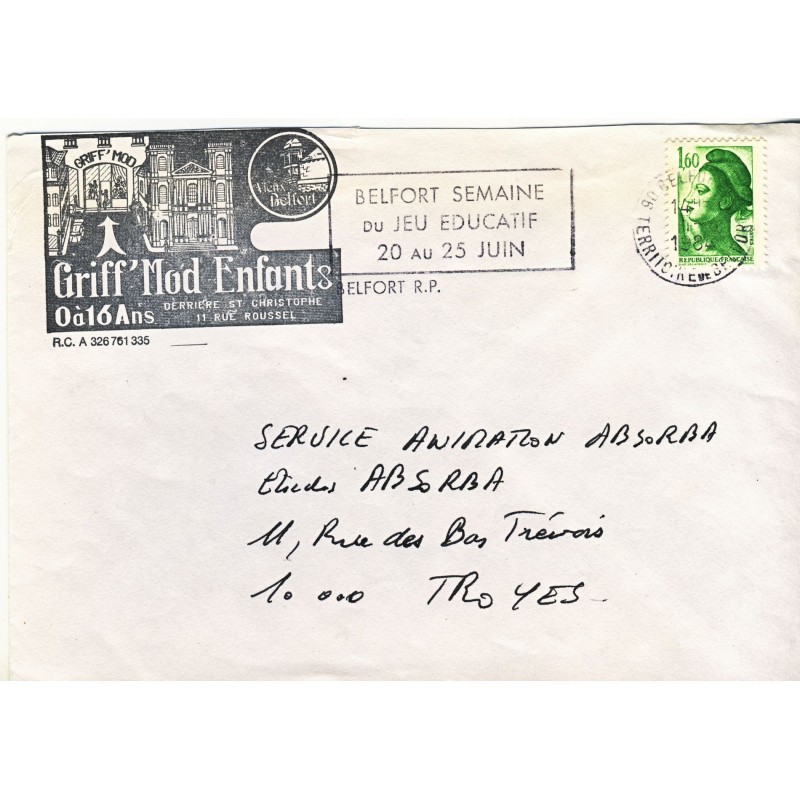 GRIFF' MOD
Vieux Belfort
Griff' Mod Enfants
0 à 16 Ans
DERRIÈRE ST CHRISTOPHE
11 RUE ROUSSEL
R.C. A 326 761 335
BELFORT SEMAINE
DU JEU EDUCATIF
20 AU 25 JUIN
BELFORT R.P.
1,60
REPUBLIQUE FRANÇAISE
90 TERRITOIRE DE BELFORT
SERVICE ANIMATION ABSORBA
ABSORBA
11, Rue des Bas Trévois
10 000 TROYES